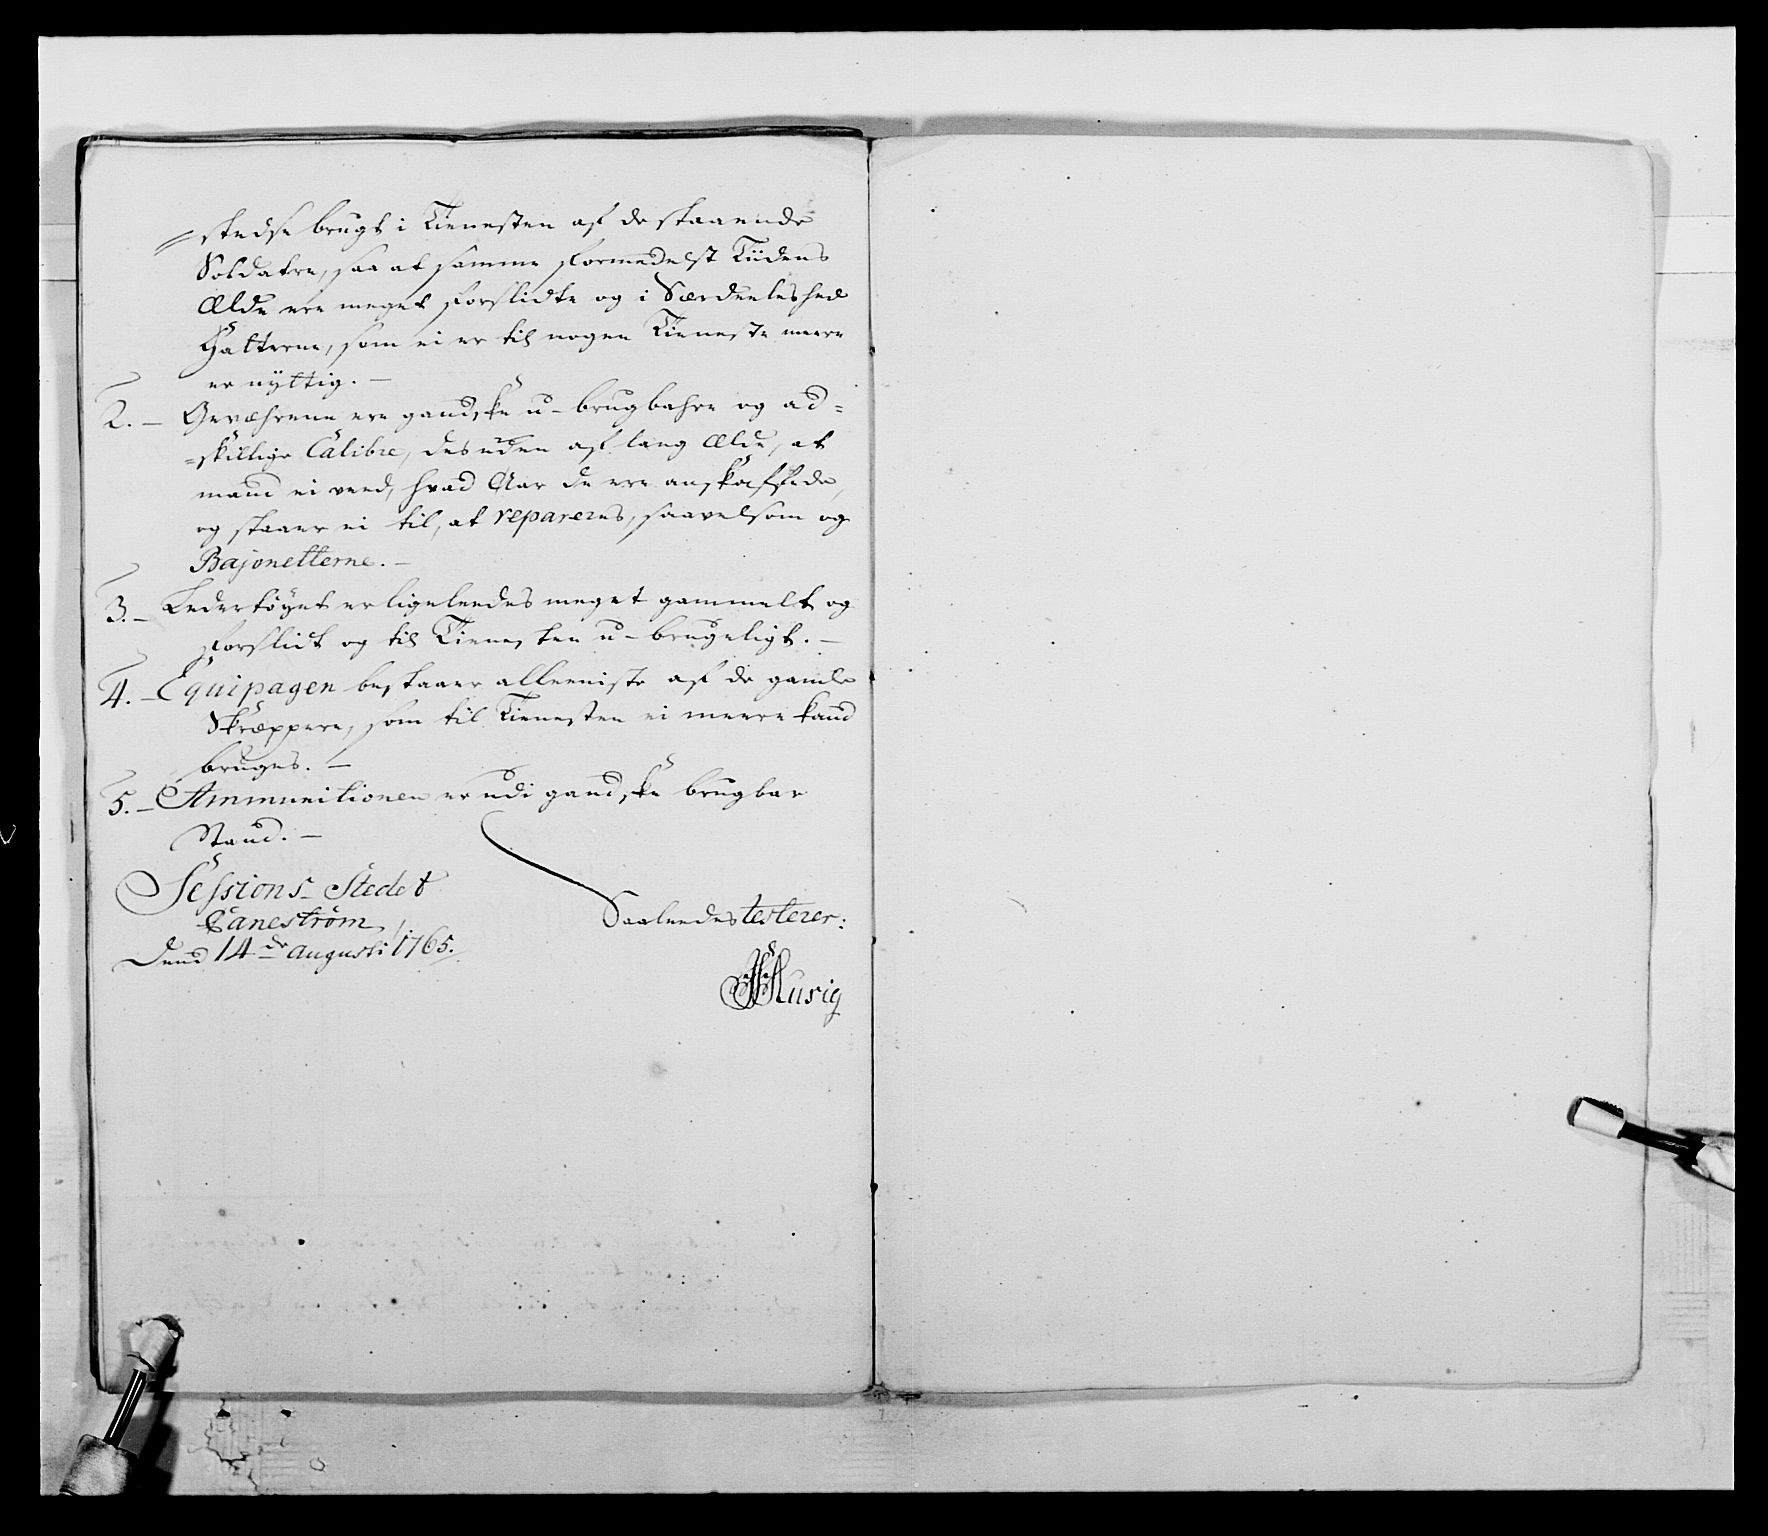 stedse brugt i Tienesten af de staaende
Soldatre, saa at samme formedelst Tiidens
Ælde ere meget forslidte og i Særdeeleshed
Hatterne, som ei er til nogen Tieneste meere
er nyttig. —
2. — Geværene ere gandske u-brugbahre og ad=
=skillige Calibre, desuden af lang Ælde, at
mand ei veed, hvad Aar de ere anskaffede,
og staaer ei til, at repareres, saavelsom og
Bajonetterne. —
3. — Ledertøyet er ligeleedes meget gammelt og
forslidt og til Tienesten u-brugeligt. —
4. — Equipagen bestaaer alleeniste af de gamle
Skræppere, som til Tienesten ei meere kand
bruges. —
5. — Ammunitionen er udi gandske brugbar
Stand. —
Sessions-Stedet
Canestrøm
Dend 14de Augusti 1765.
Saaleedes testerer:
Husig